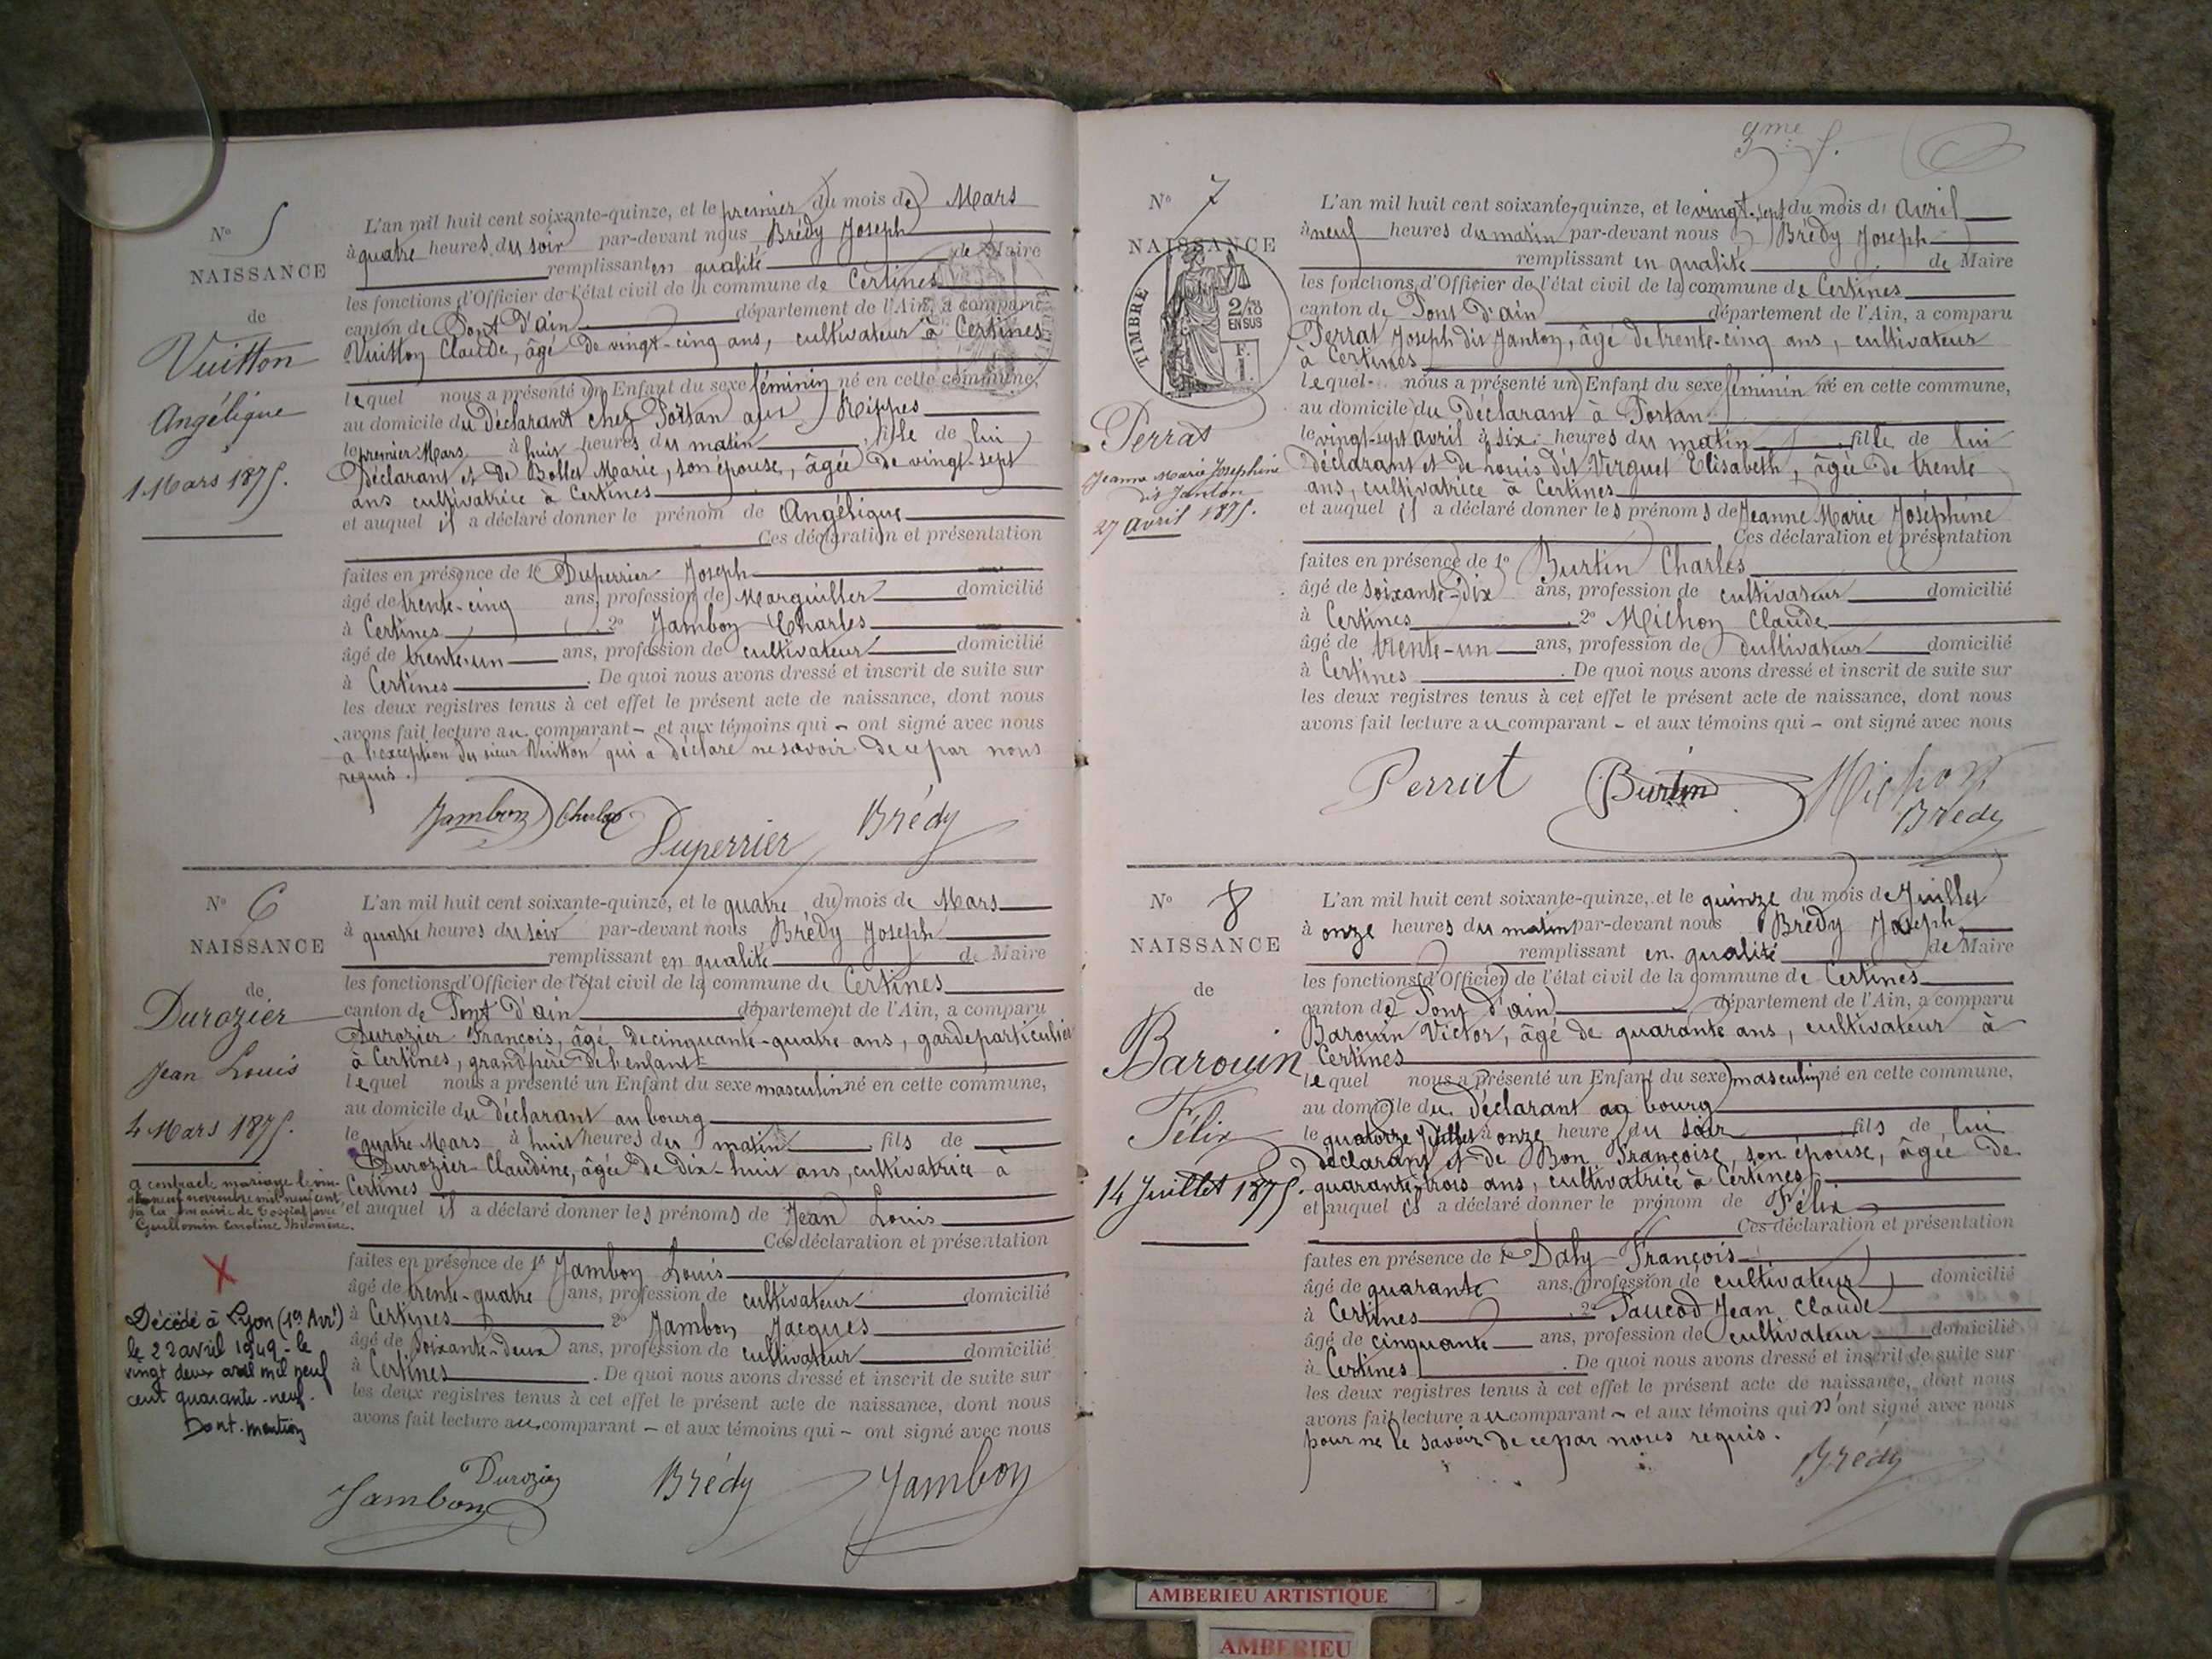 N° 5
NAISSANCE
de
Vuitton
Angélique
1 Mars 1875.
L'an mil huit cent soixante-quinze, et le premier du mois de Mars
à quatre heures du soir par-devant nous Brédy Joseph
remplissant en qualité de Maire
les fonctions d'Officier de l'état civil de la commune de Certines
canton de Pont d'ain département de l'Ain, a comparu
Vuitton Claude, âgé de vingt-cinq ans, cultivateur à Certines
lequel nous a présenté un Enfant du sexe féminin né en cette commune,
au domicile du Déclarant chez aux Rippes
le premier Mars à huit heures du matin, fille de lui
Déclarant et de Bollet Marie, son épouse, âgée de vingt-sept
ans cultivatrice à Certines
et auquel il a déclaré donner le prénom de Angélique
Ces déclaration et présentation
faites en présence de 1° Duperrier Joseph
âgé de trente-cinq ans, profession de Marguiller domicilié
à Certines, 2° Jambon Charles
âgé de trente-un ans, profession de cultivateur domicilié
à Certines. De quoi nous avons dressé et inscrit de suite sur
les deux registres tenus à cet effet le présent acte de naissance, dont nous
avons fait lecture au comparant - et aux témoins qui - ont signé avec nous
à l'exception du sieur Vuitton qui a déclaré ne savoir de ce par nous
requis.
Jambon Charles
Duperrier
Brédy
N° 6
NAISSANCE
de
Durozier
Jean Louis
4 Mars 1875.
a contracté mariage le vin-
novembre mil neuf cent
à la mairie de Tossiat avec
Guillomin Caroline Philomène.
X
Décédé à Lyon (1er Arr!)
le 22 avril 1949 - le
vingt deux avril mil neuf
cent quarante-neuf.
Dont mention
L'an mil huit cent soixante-quinze, et le quatre du mois de Mars
à quatre heures du soir par-devant nous Brédy Joseph
remplissant en qualité de Maire
les fonctions d'Officier de l'état civil de la commune de Certines
canton de Pont d'ain département de l'Ain, a comparu
Durozier François, âgé de cinquante-quatre ans, garde particulier
à Certines, grand père de l'enfant
lequel nous a présenté un Enfant du sexe masculin né en cette commune,
au domicile du Déclarant au bourg
le quatre Mars à huit heures du matin, fils de
Durozier Claudine, âgée de Dix-huit ans, cultivatrice à
Certines
et auquel il a déclaré donner les prénoms de Jean Louis
Ces déclaration et présentation
faites en présence de 1° Jambon Louis
âgé de trente-quatre ans, profession de cultivateur domicilié
à Certines 2° Jambon Jacques
âgé de soixante-deux ans, profession de cultivateur domicilié
à Certines. De quoi nous avons dressé et inscrit de suite sur
les deux registres tenus à cet effet le présent acte de naissance, dont nous
avons fait lecture au comparant - et aux témoins qui - ont signé avec nous
Durozier
Jambon
Brédy
Jambon
5me f.
N° 7
NAISSANCE
TIMBRE
2/10
EN SUS
F.
1.
Perrat
Jeanne Marie Josephine
dit Janton
27 avril 1875.
L'an mil huit cent soixante-quinze, et le vingt-sept du mois d' avril
à neuf heures du matin par-devant nous Brédy Joseph
remplissant en qualité de Maire
les fonctions d'Officier de l'état civil de la commune de Certines
canton de Pont d'ain département de l'Ain, a comparu
Perrat Joseph dit Janton, âgé de trente-cinq ans, cultivateur
à Certines
lequel nous a présenté un Enfant du sexe féminin né en cette commune,
au domicile du Déclarant à Fortan
le vingt-sept avril à six heures du matin, fille de lui
déclarant et de Louis dit Verguet Elisabeth, âgée de trente
ans, cultivatrice à Certines
et auquel il a déclaré donner les prénoms de Jeanne Marie Joséphine
Ces déclaration et présentation
faites en présence de 1° Burtin Charles
âgé de soixante-dix ans, profession de cultivateur domicilié
à Certines, 2° Michon Claude
âgé de trente-un ans, profession de cultivateur domicilié
à Certines. De quoi nous avons dressé et inscrit de suite sur
les deux registres tenus à cet effet le présent acte de naissance, dont nous
avons fait lecture au comparant - et aux témoins qui - ont signé avec nous
Perrat
Burtin
Michon
Brédy
N° 8
NAISSANCE
de
Barouin
Félix
14 Juillet 1875.
L'an mil huit cent soixante-quinze, et le quinze du mois de Juillet
à onze heures du matin par-devant nous Brédy Joseph
remplissant en qualité de Maire
les fonctions d'Officier de l'état civil de la commune de Certines
canton de Pont d'ain département de l'Ain, a comparu
Barouin Victor, âgé de quarante ans, cultivateur à
Certines
lequel nous a présenté un Enfant du sexe masculin né en cette commune,
au domicile du Déclarant au bourg
le quatorze Juillet à onze heure du soir, fils de lui
déclarant et de Bon Françoise, son épouse, âgée de
quarante-trois ans, cultivatrice à Certines
et auquel il a déclaré donner le prénom de Félix
Ces déclaration et présentation
faites en présence de 1° Daly François
âgé de quarante ans, profession de cultivateur domicilié
à Certines, 2° Paucod Jean Claude
âgé de cinquante ans, profession de cultivateur domicilié
à Certines. De quoi nous avons dressé et inscrit de suite sur
les deux registres tenus à cet effet le présent acte de naissance, dont nous
avons fait lecture au comparant - et aux témoins qui n'ont signé avec nous
pour ne le savoir de ce par nous requis.
Brédy
AMBERIEU ARTISTIQUE
AMBERIEU